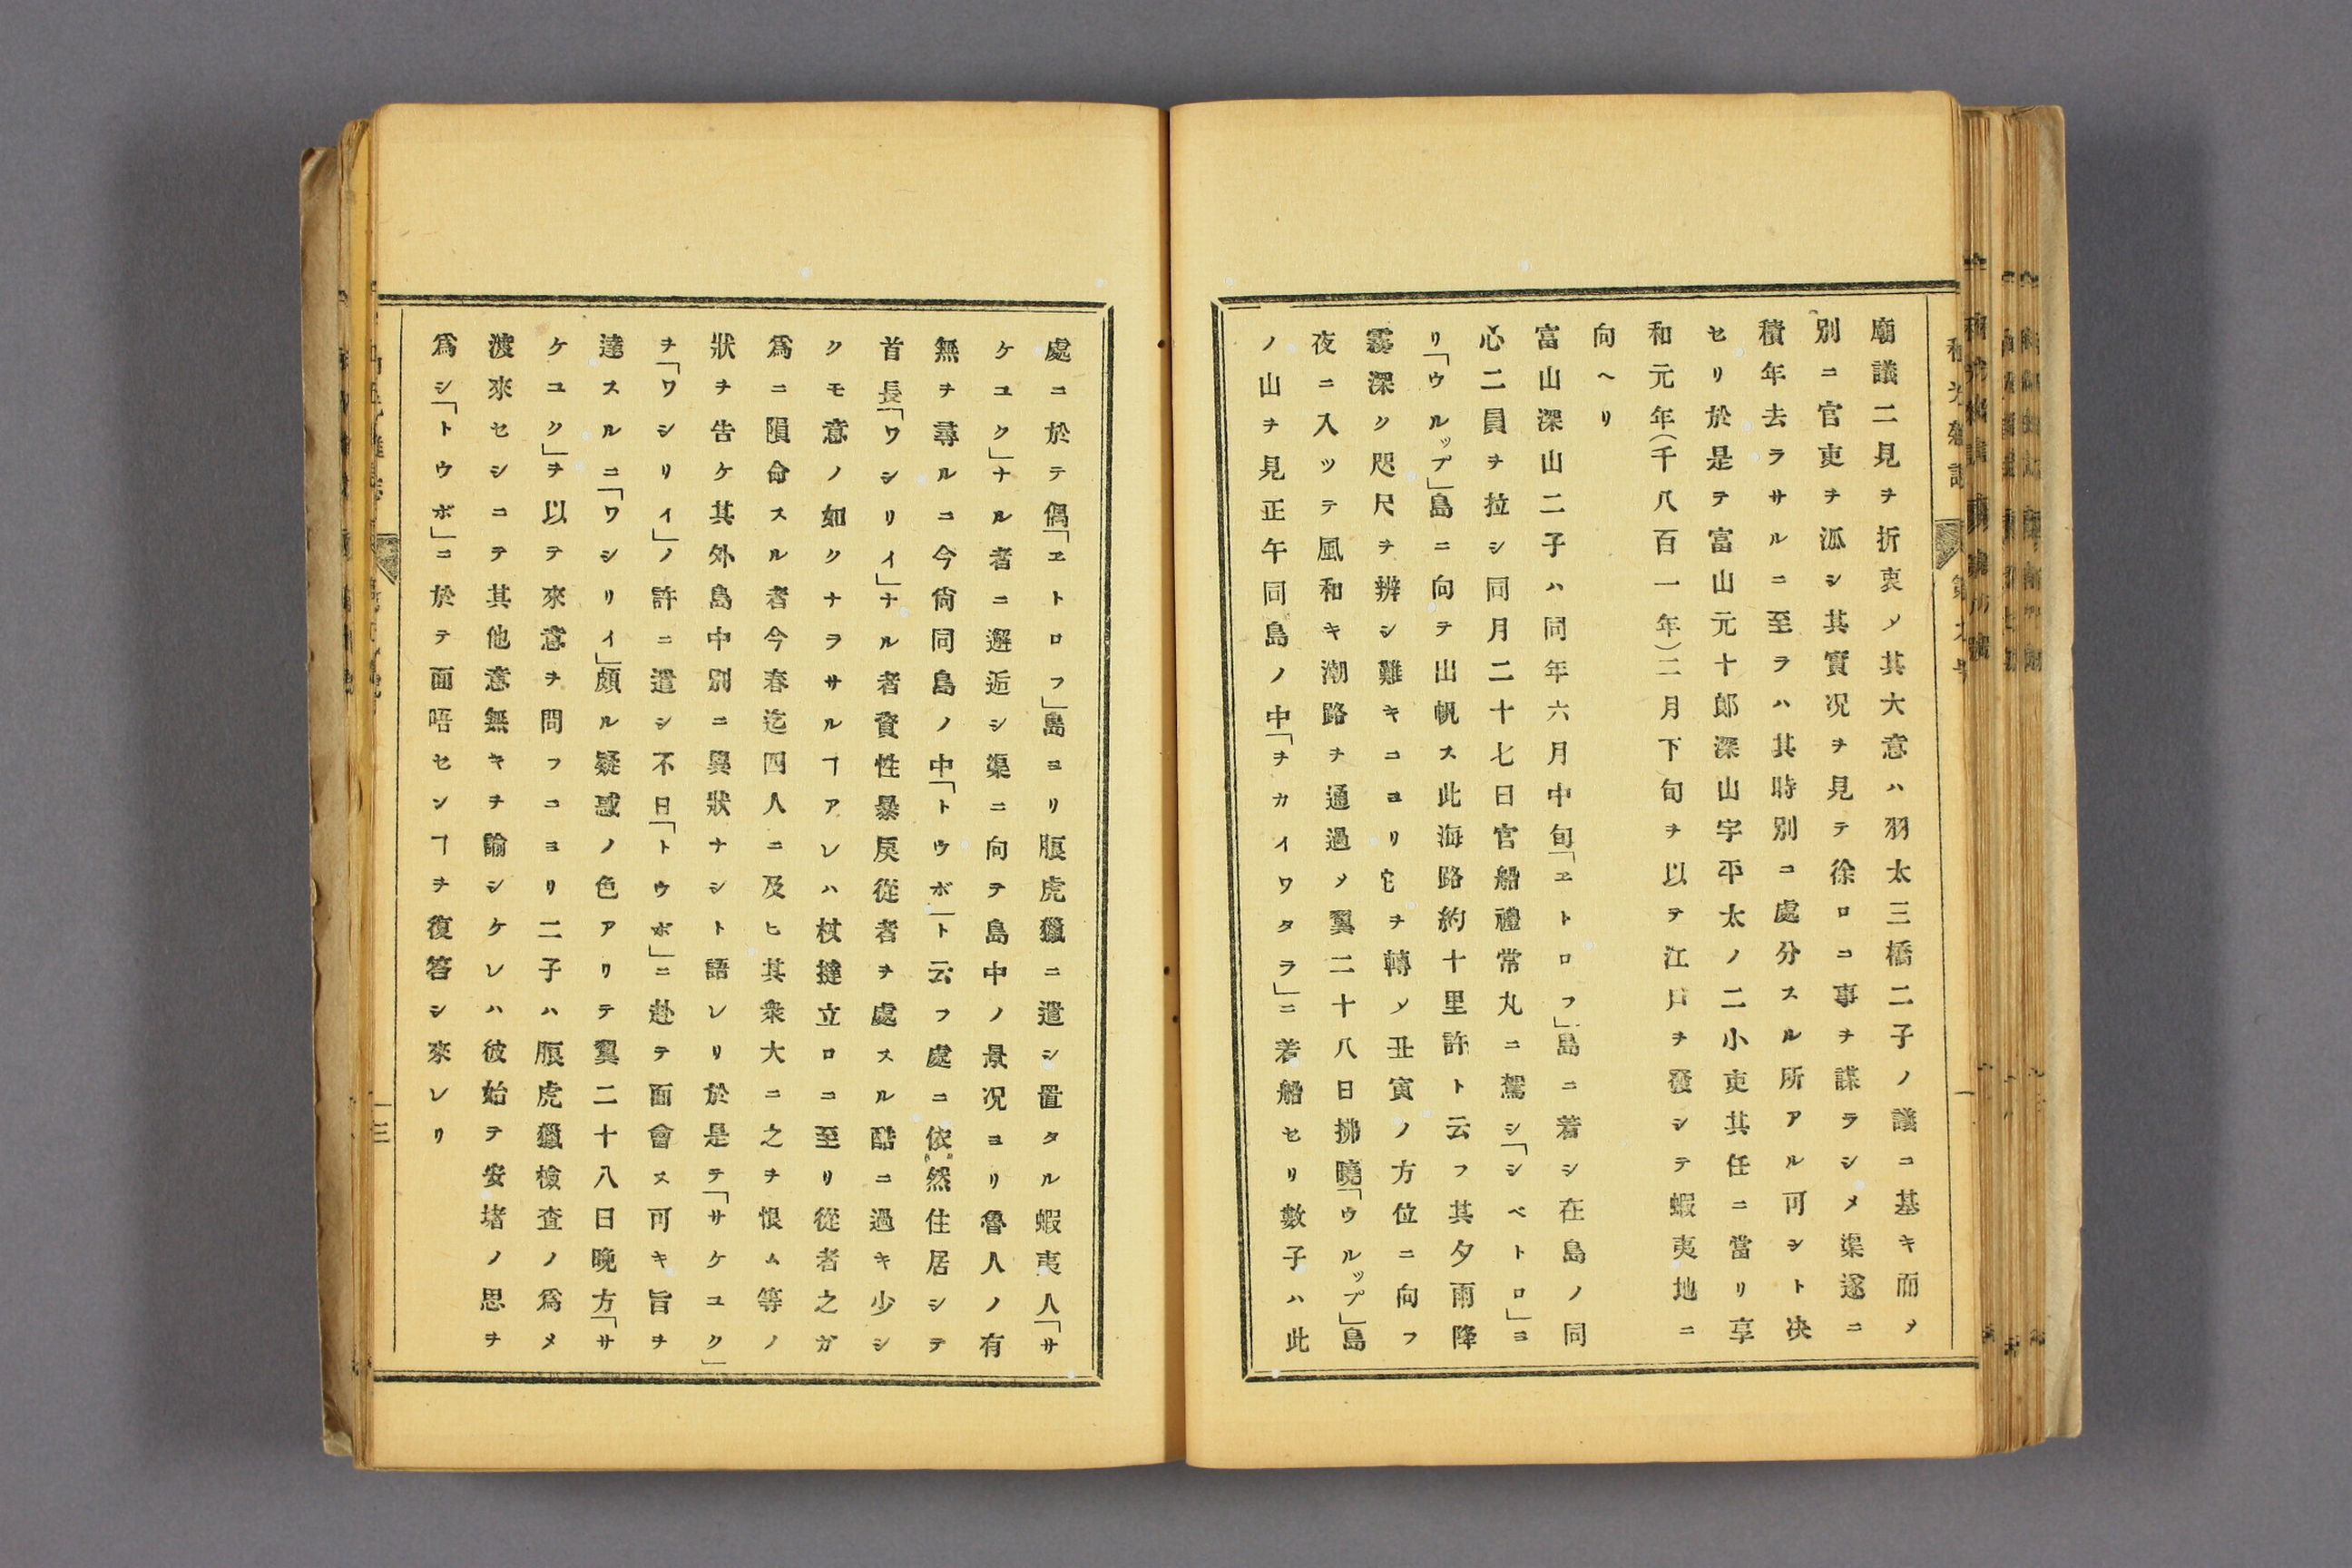 廟議二見ヲ折衷ノ其大意ハ羽太三橋二子ノ議ニ基キ而ノ
別ニ官吏ヲ派シ其實况ヲ見テ徐ロニ事ヲ謀ラシメ渠遂ニ
積年去ラサルニ至ラハ其時別ニ處分スル所アル可シト决
セリ於是テ富山元十郎深山宇平太ノ二小吏其任ニ當リ享
和元年(千八百一年)二月下旬ヲ以テ江戸ヲ發シテ蝦夷地ニ
向ヘリ
富山深山二子ハ同年六月中旬「ヱトロフ」島ニ着シ在島ノ同
心二員ヲ拉シ同月二十七日官船禮常丸ニ駕シ「シベトロ」ヨ
リ「ウルップ」島ニ向テ出帆ス此海路約十里許ト云フ其夕雨降
霧深ク咫尺ヲ辨シ難キニヨリ它ヲ轉メ丑寅ノ方位ニ向フ
夜ニ入ッテ風和キ潮路ヲ通過メ翼二十八日拂曉「ウルップ」島
ノ山ヲ見正午同島ノ中「ヲカイワタラ」ニ着船セリ數子ハ此
處ニ於テ偶「ヱトロフ」島ヨリ脹虎獵ニ遣シ置タル蝦夷人「サ
ケユク」ナル者ニ邂逅シ渠ニ向テ島中ノ景况ヨリ魯人ノ有
無ヲ尋ルニ今尙同島ノ中「トウボ」ト云フ處ニ依然住居シテ
首長「ワシリイ」ナル者資性暴戻從者ヲ處スル酷ニ過キ少シ
クモ意ノ如クナヲサルヿアレハ杖撻立ロニ至リ從者之ガ
爲ニ隕命スル者今春迄四人ニ及ヒ其衆大ニ之ヲ恨ム等ノ
狀ヲ告ケ其外島中別ニ異狀ナシト語レリ於是テ「サケユク」
ヲ「ワシリイ」ノ許ニ遣シ不日「トウボ」ニ赴テ面會ス可キ旨ヲ
達スルニ「ワシリイ」頗ル疑惑ノ色アリテ翼二十八日晩方「サ
ケユク」ヲ以テ來意ヲ問フニヨリ二子ハ脹虎獵檢査ノ爲メ
渡來セシニテ其他意無キヲ諭シケレハ彼始テ安堵ノ思ヲ
爲シ「トウボ」ニ於テ面唔センヿヲ復答シ來レリ